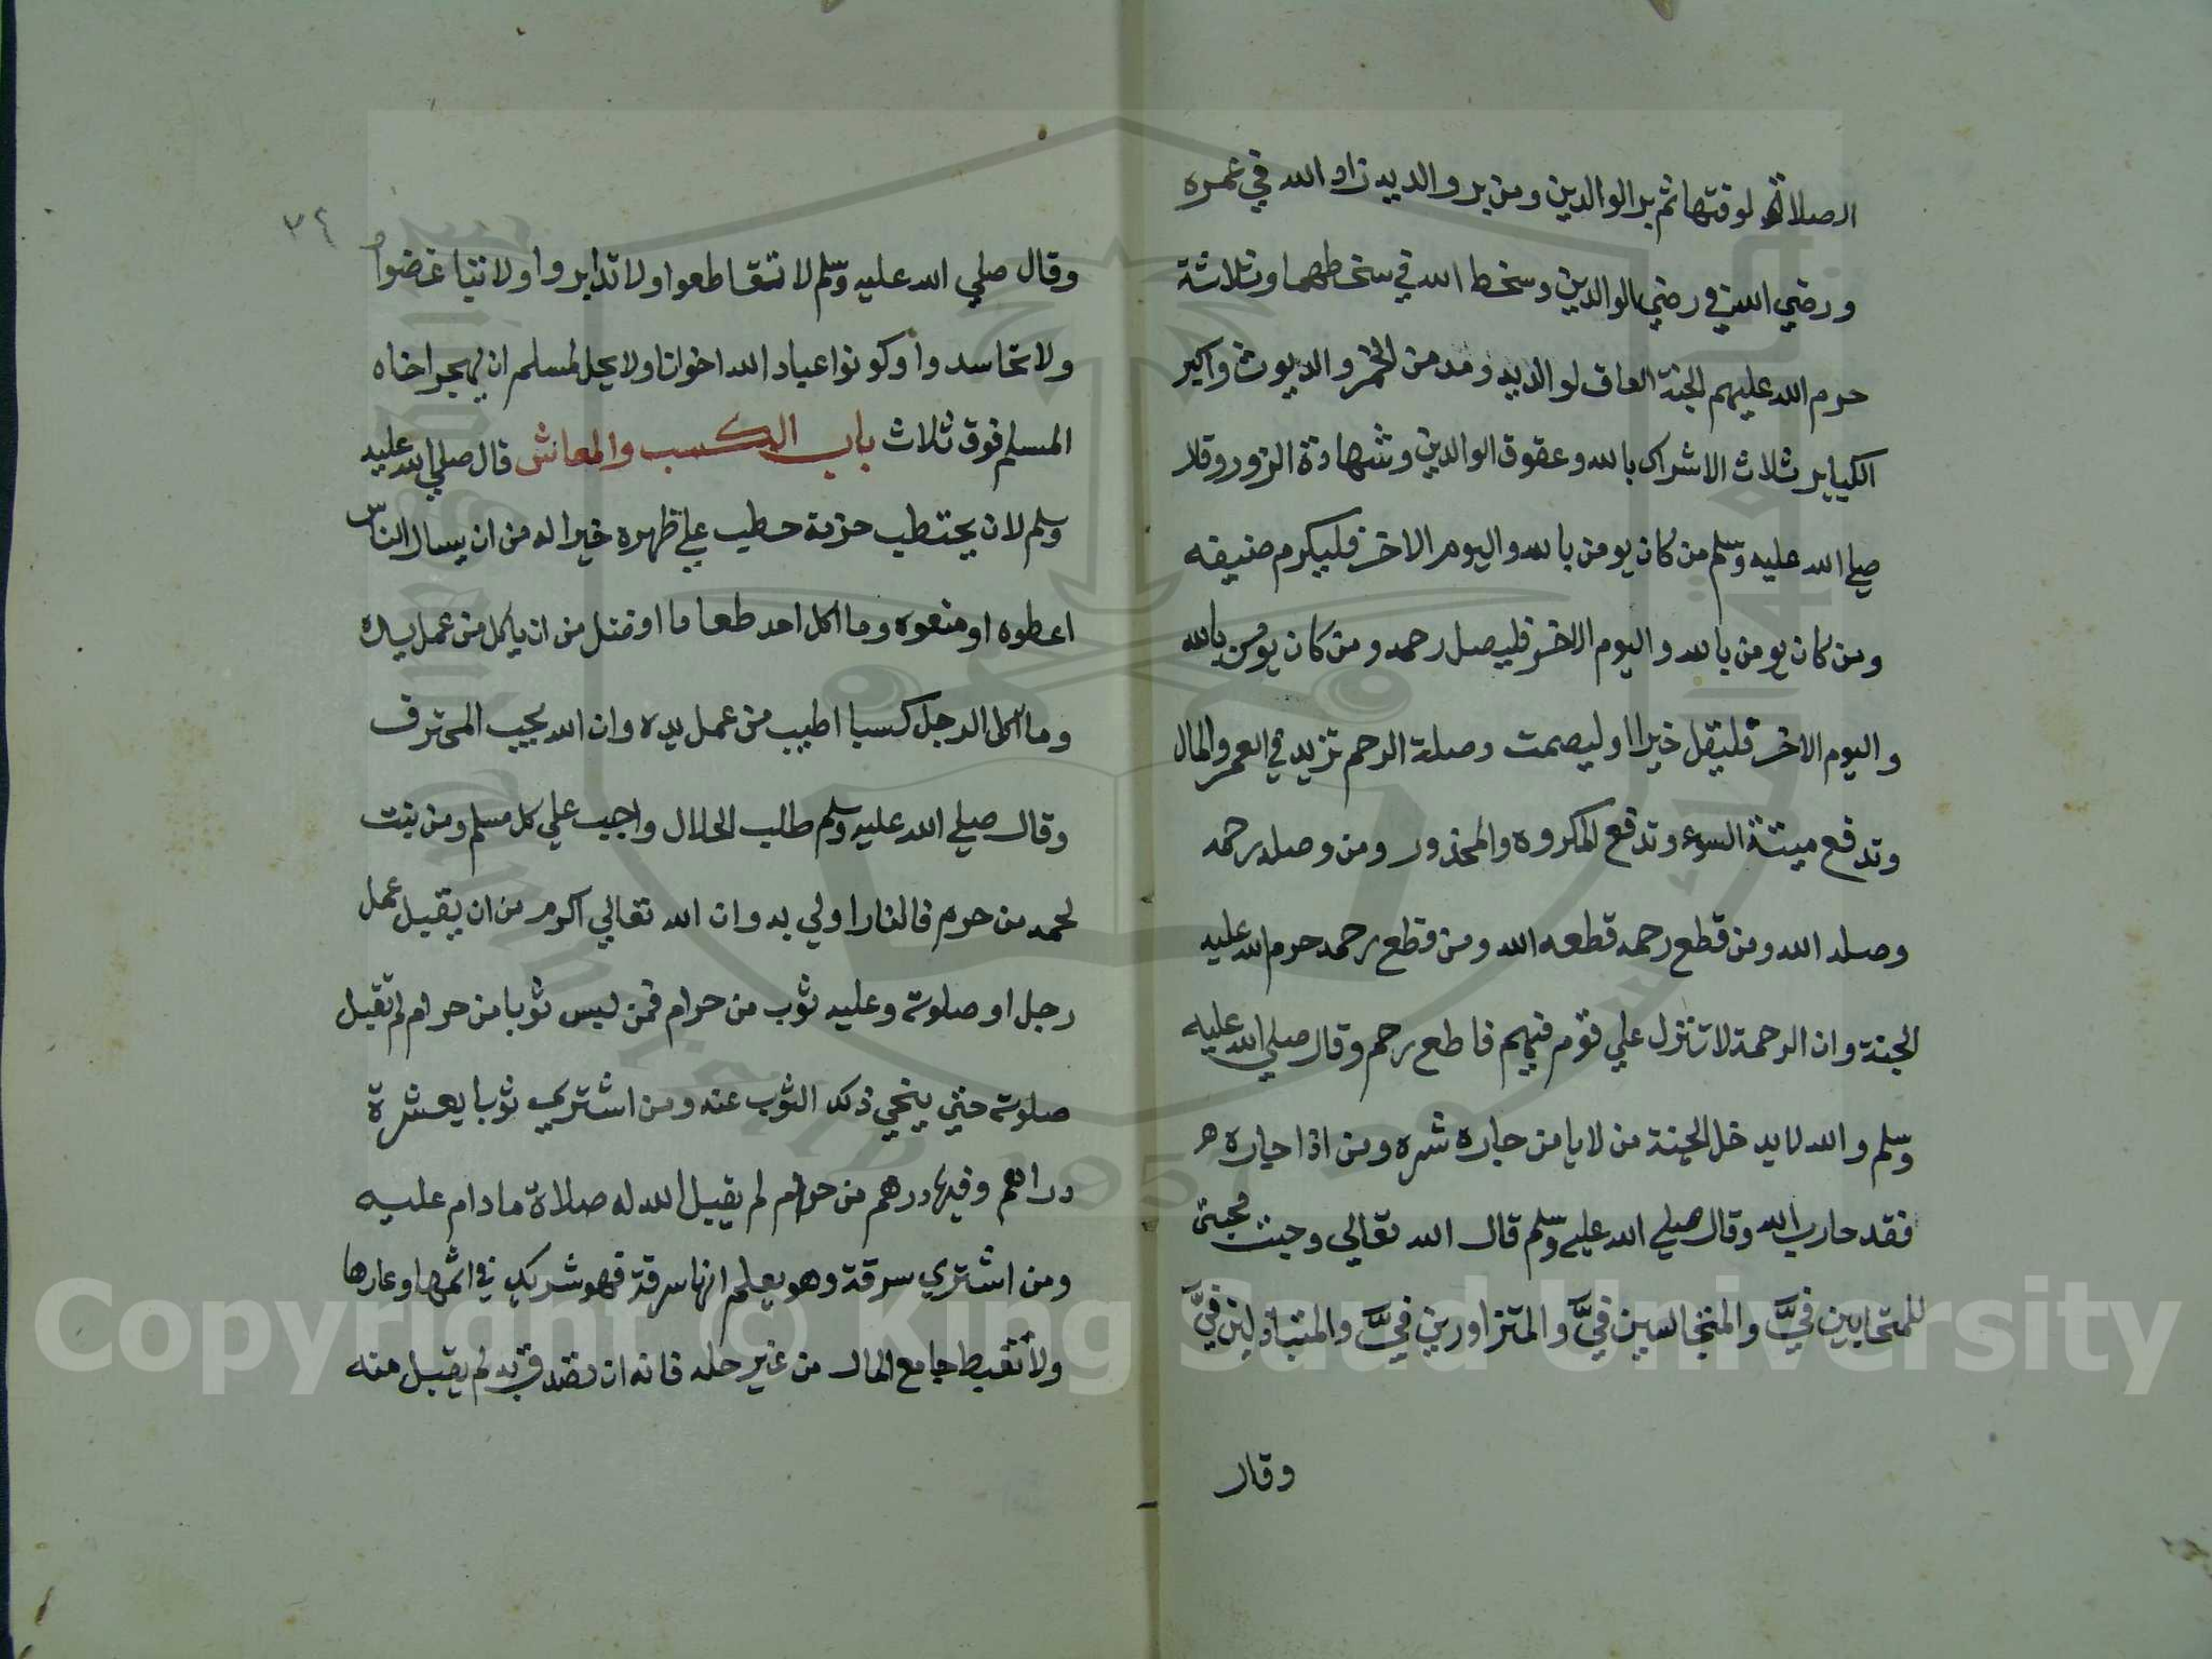 الصلاة لوقتها ثم بر الوالدين ومن بر والديه زاد الله في عمره
ورضي الله في رضي الوالدين وسخط الله في سخطهما وثلاثة
حرم الله عليهم الجنة العاق لوالديه ومدمن الخمر والديوث واكبر
الكباير ثلاث الاشراك بالله وعقوق الوالدين وشهادة الزور وقال
صلي الله عليه وسلم من كان يومن بالله واليوم الاخر فليكرم ضيفه
ومن كان يومن بالله واليوم الاخر فليصل رحمه ومن كان يومن بالله
واليوم الاخر فليقل خيرا او ليصمت وصلة الرحم تزيد في العمر والمال
وتدفع ميتة السوء وتدفع المكروه والمحذور ومن وصل رحمه
وصله الله ومن قطع رحمه قطعه الله ومن قطع رحمه حرم الله عليه
الجنة وان الرحمة لا تنزل علي قوم فيهم قاطع رحم وقال صلي الله عليه
وسلم والله لا يدخل الجنة من لا يامن جاره شره ومن اذا جاره
فقد حارب الله وقال صلي الله عليه وسلم قال الله تعالي وجبت محبتي
للمتحابين فيَّ والمتجالسين فيَّ والمتزاورين فيَّ والمتباذلين فيَّ
وقال
٣٤
وقال صلي الله عليه وسلم لا تتقاطعوا ولا تدابروا ولا تباغضوا
ولا تحاسدوا وكونوا عباد الله اخوانا ولا يحل لمسلم ان يهجر اخاه
المسلم فوق ثلاث باب الكسب والمعاش قال صلي الله عليه
وسلم لان يحتطب حزمة حطب علي ظهره خير اله من ان يسال الناس
اعطوه او منعوه وما اكل احد طعاما افضل من ان ياكل من عمل يده
وما اكل الرجل كسبا اطيب من عمل يده وان الله يحب المحترف
وقال صلي الله عليه وسلم طلب الحلال واجب علي كل مسلم ومن نبت
لحمه من حرم فالنار اولي به وان الله تعالي اكرم من ان يقبل عمل
رجل او صلوته وعليه ثوب من حرام فمن لبس ثوبا من حرام لم تقبل
صلوته حتي ينحي ذلك الثوب عنه ومن اشتري ثوبا بعشرة
دراهم وفيها درهم من حرام لم يقبل الله له صلاة ما دام عليه
ومن اشتري سرقة وهو يعلم انها سرقة فهو شريك في اثمها وعارها
ولا تغبط جامع المال من غير حله فانه ان تصدق به لم يقبل منه
Copyright © King Saud University